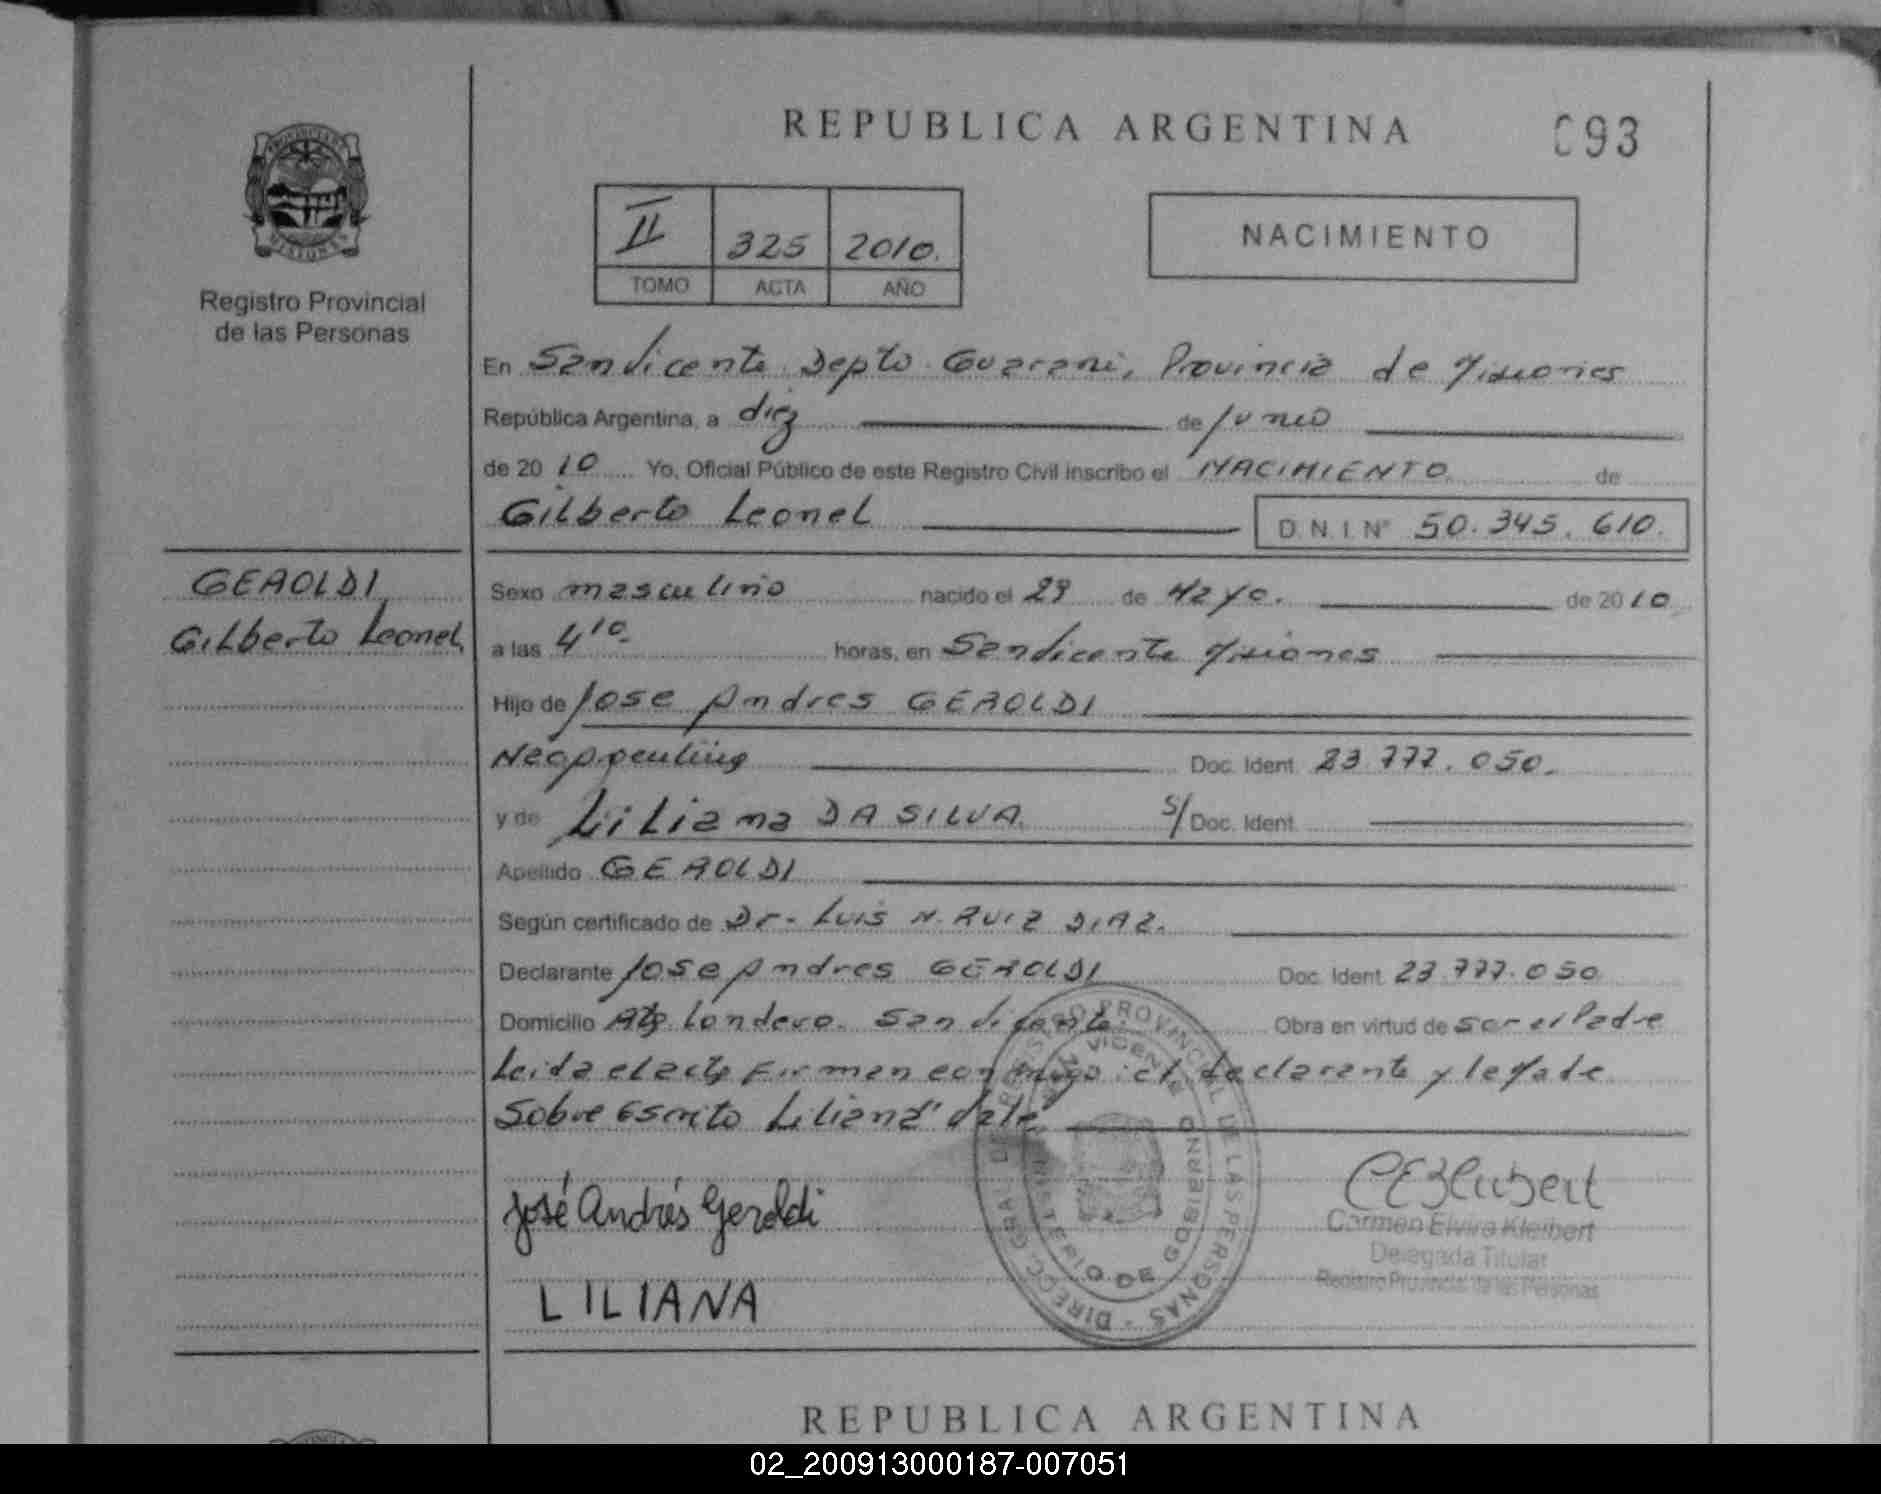 REPUBLICA ARGENTINA
093
PROVINCIA DE MISIONES
Registro Provincial
de las Personas
II 325 2010.
TOMO ACTA AÑO
NACIMIENTO
En San Vicente Depto Guarani, Provincia de Misiones
República Argentina, a diez de Junio
de 2010 Yo, Oficial Público de este Registro Civil inscribo el NACIMIENTO de
Gilberto Leonel D.N.I. Nº 50.345.610.
GEROLDI
Gilberto Leonel
Sexo masculino nacido el 29 de Mayo. de 2010
a las 4 10 horas, en San Vicente Misiones
Hijo de Jose Andres GEROLDI
Neg. argentino Doc. Ident. 23.777.050.
y de Liliana DA SILVA S/ Doc. Ident.
Apellido GEROLDI
Según certificado de Dr. Luis N. RUIZ DIAZ.
Declarante Jose Andres GEROLDI Doc. Ident. 23.777.050
Domicilio Londero. San Vicente. Obra en virtud de ser el Padre
Leida el acta Firman conmigo el declarante y la
Sobre Escrito Liliana" Vale
José Andrés Geroldi
LILIANA
DIRECC. GRAL. DEL REGISTRO PROVINCIAL DE LAS PERSONAS
SAN VICENTE
MINISTERIO DE GOBIERNO
Carmen Elvira Kleibert
Delegada Titular
Registro Provincial de las Personas
REPUBLICA ARGENTINA
02_200913000187-007051